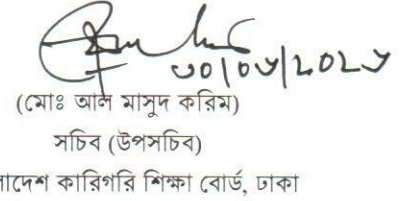 ৩০/০৬/২০২৬
(মোঃ আল মাসুদ করিম)
সচিব (উপসচিব)
লাদেশ কারিগরি শিক্ষা বোর্ড, ঢাকা